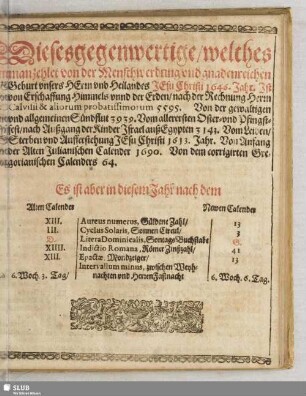 Dieses gegenwertige / welches
man zehlet von der Menschwerdung vnd gnadenreichen
Geburt vnsers HErrn vnd Heilandes JEsu Christi 1646. Jahr. Ist
von Erschaffung Himmels vnnd der Erden / nach der Rechnung Herrn
Calvisii & aliorum probatissimorum 5595. Von der gewaltigen
vnd allgemeinen Sündflut 3939. Vom allerersten Oster- vnd Pfingst-
fest / nach Außgang der Kinder Israel auß Egypten 3143. Vom Leyden /
Sterben vnd Aufferstehung JEsu Christi 1613. Jahr. Von Anfang
der Alten Julianischen Calender 1690. Von dem corrigirten Gre-
gorianischen Calenders 64.
Es ist aber in diesem Jahr nach dem
Alten Calender
Newen Calender
XIII. Aureus numerus, Güldene Zahl / 13
III. Cyclus Solaris, Sonnen Circul / 3
D. Litera Dominicalis, Sontags Buchstabe G.
XIIII. Indictio Romana, Römer Zinßzahl /
XIII. Epactæ, Mondzeiger / 13
Intervallum minus, zwischen Weyh-
6. Woch. 3. Tag / nachten vnd Herren Faßnacht 6. Woch. 6. Tag.
SLUB